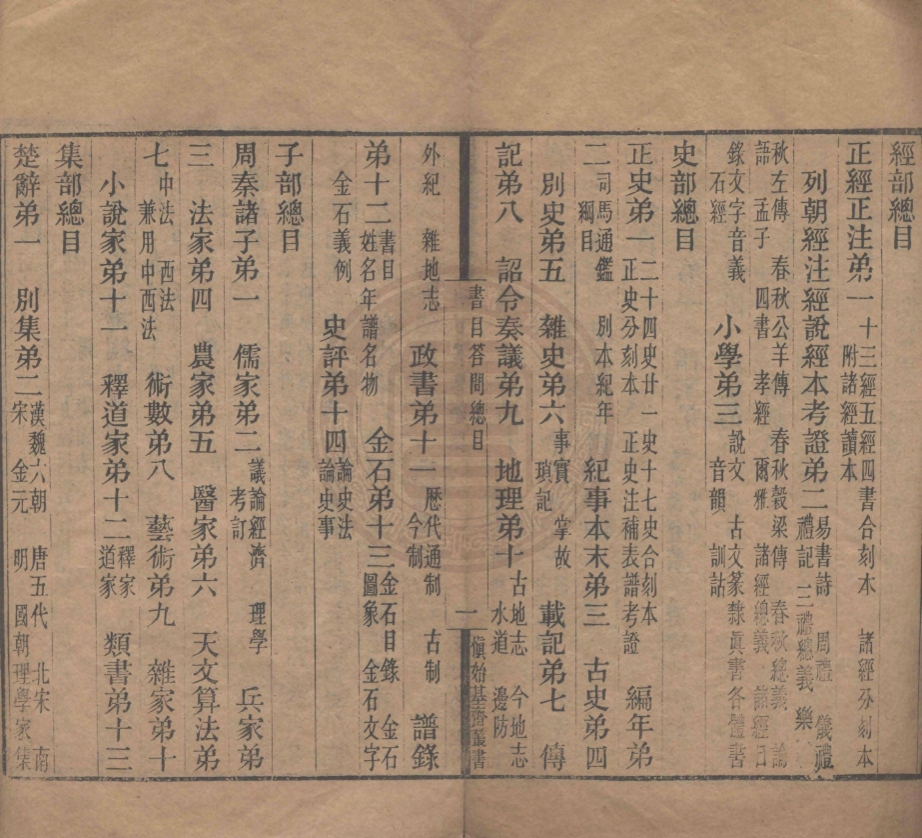 經部總目
正經正注弟一 十三經五經四書合刻本 諸經分刻本 附諸經讀本
列朝經注經說經本考證弟二 易書詩 周禮 儀禮 禮記 三禮總義 樂 春
秋左傳 春秋公羊傳 春秋穀梁傳 春秋總義 論
語 孟子 四書 孝經 爾雅 諸經總義 諸經目
錄文字音義 石經 小學弟三 說文 古文篆隸眞書各體書 音韻 訓詁
史部總目
正史弟一 二十四史廿一史十七史合刻本 正史分刻本 正史注補表譜考證 編年弟
二 司馬通鑑 別本紀年 綱目 紀事本末弟三 古史弟四
別史弟五 雜史弟六 事實 掌故 瑣記 載記弟七 傳
記弟八 詔令奏議弟九 地理弟十 古地志 今地志 水道 邊防
書目答問總目 一 愼始基齋叢書
外紀 雜地志 政書弟十一 歷代通制 古制 今制 譜錄
弟十二 書目 姓名年譜名物 金石弟十三 金石目錄 金石圖象 金石文字
金石義例 史評弟十四 論史法 論史事
子部總目
周秦諸子弟一 儒家弟二 議論經濟 理學 考訂 兵家弟
三 法家弟四 農家弟五 醫家弟六 天文算法弟
七 中法 西法 兼用中西法 術數弟八 藝術弟九 雜家弟十
小說家弟十一 釋道家弟十二 釋家 道家 類書弟十三
集部總目
楚辭弟一 別集弟二 漢魏六朝 唐五代 北宋 南宋 金元 明 國朝理學家集